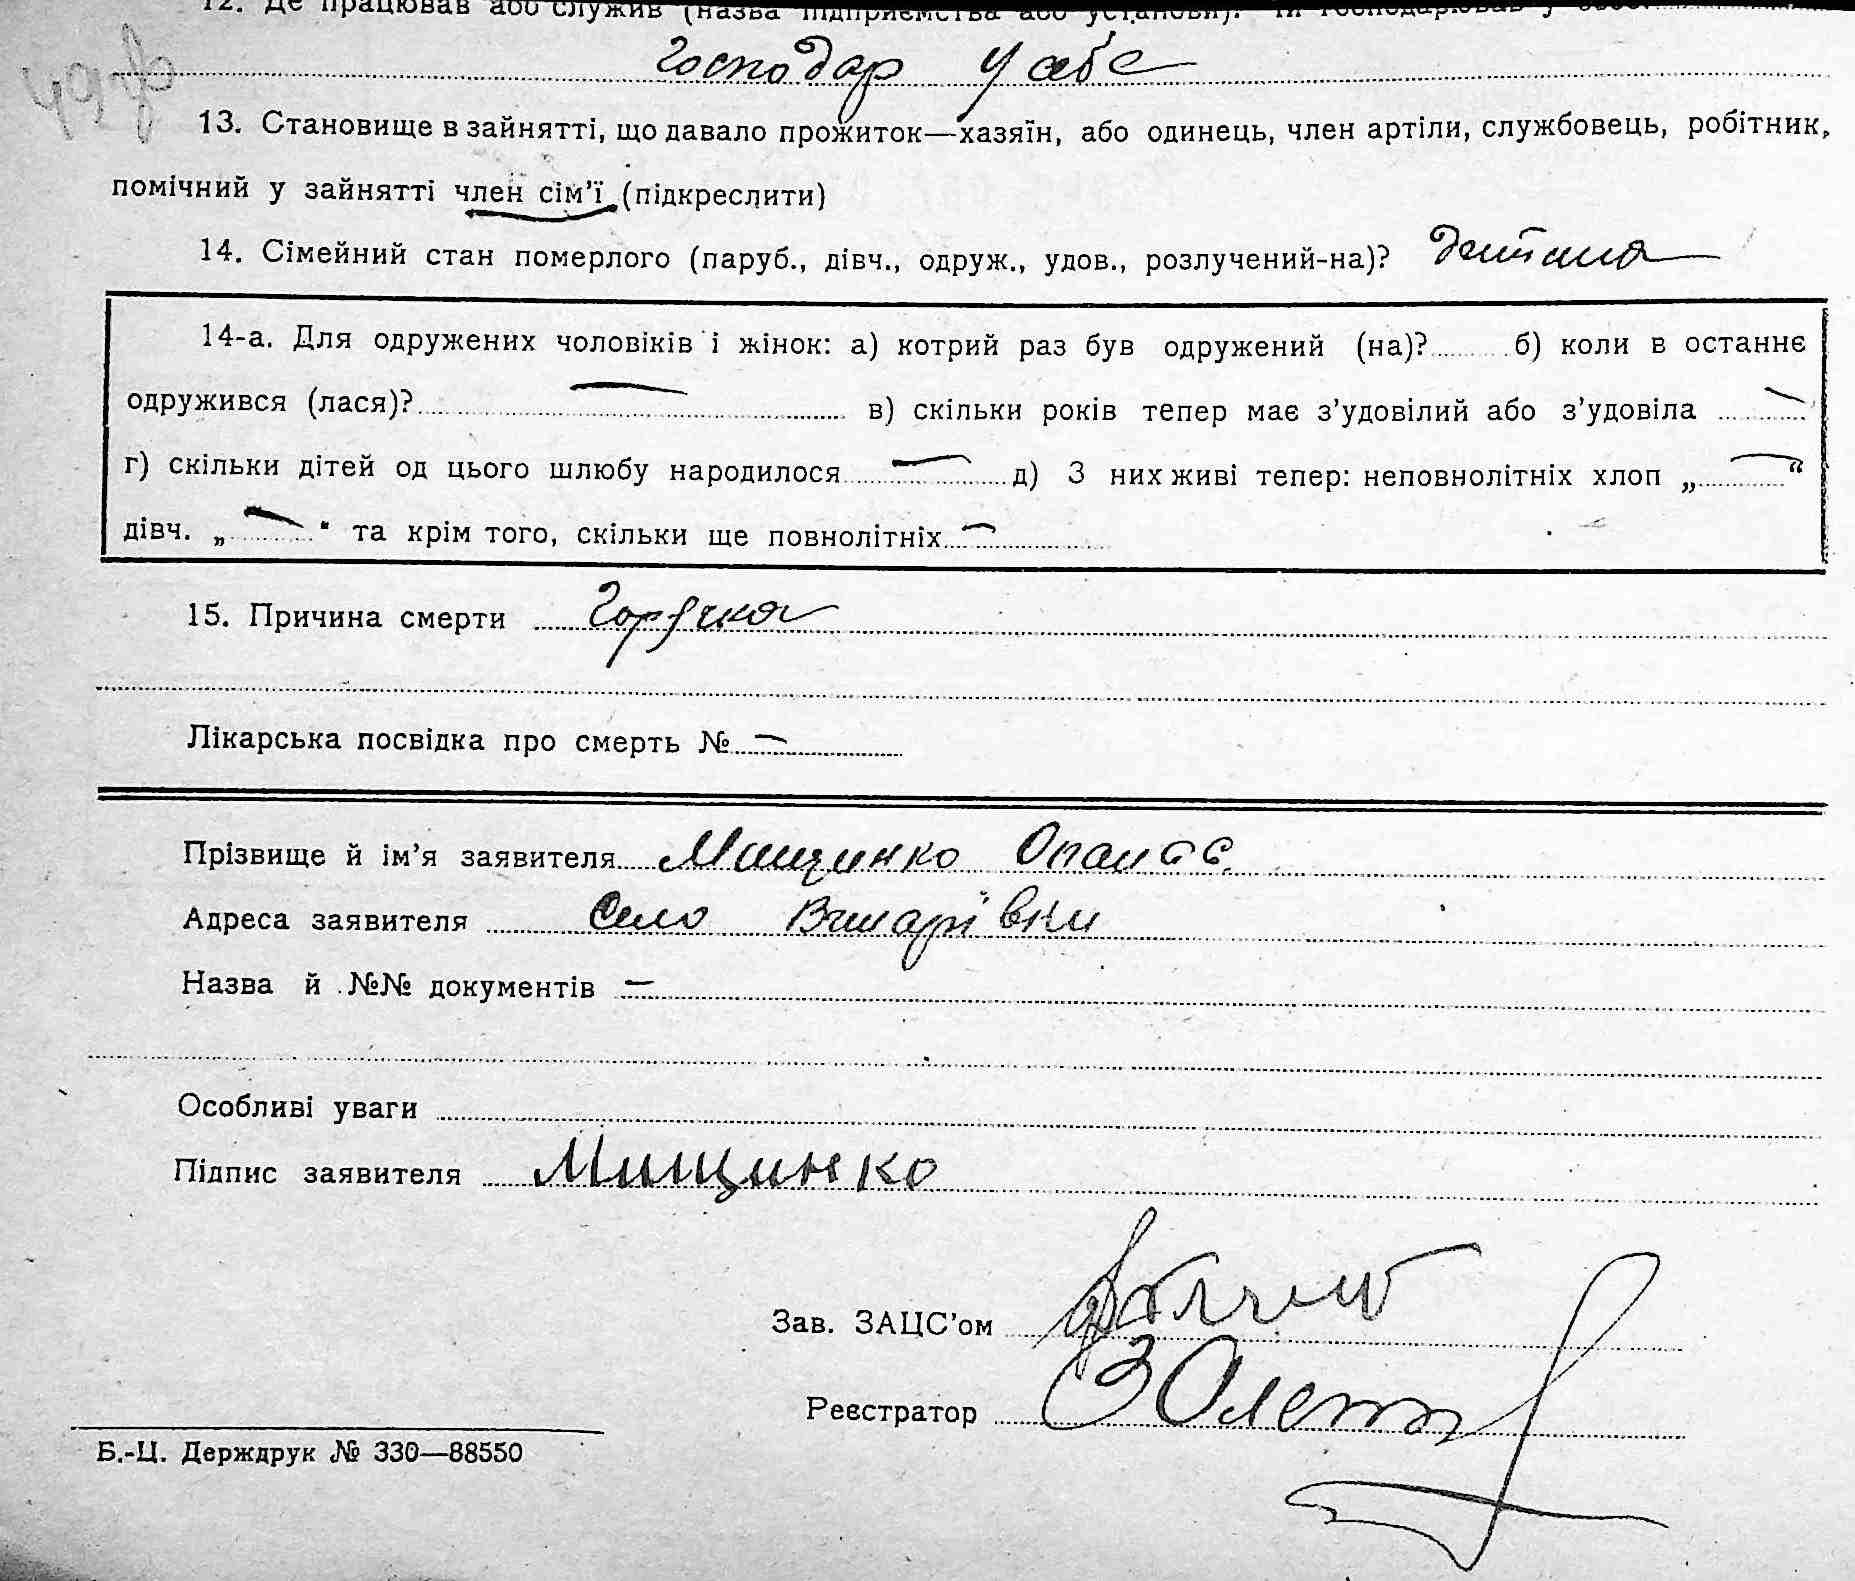 12. Де працював або служив (назва підприємства або установи). Чи господарював у себе
Господар у себе
13. Становище в зайнятті, що давало прожиток—хазяїн, або одинець, член артіли, службовець, робітник,
помічний у зайнятті член сім’ї (підкреслити)
14. Сімейний стан померлого (паруб., дівч., одруж., удов., розлучений-на)? Дитина
14-а. Для одружених чоловіків і жінок: а) котрий раз був одружений (на)? б) коли в останнє
одружився (лася)? — в) скільки років тепер має з’удовілий або з’удовіла —
г) скільки дітей од цього шлюбу народилося — д) З них живі тепер: неповнолітніх хлоп „—“
дівч. „—“ та крім того, скільки ще повнолітніх —
15. Причина смерти Горячка
Лікарська посвідка про смерть № —
Прізвище й ім’я заявителя Мищинко Опанас
Адреса заявителя Село
Назва й №№ документів —
Особливі уваги
Підпис заявителя Мищинко
Зав. ЗАЦС’ом
Реєстратор
Б.-Ц. Держдрук № 330—88550